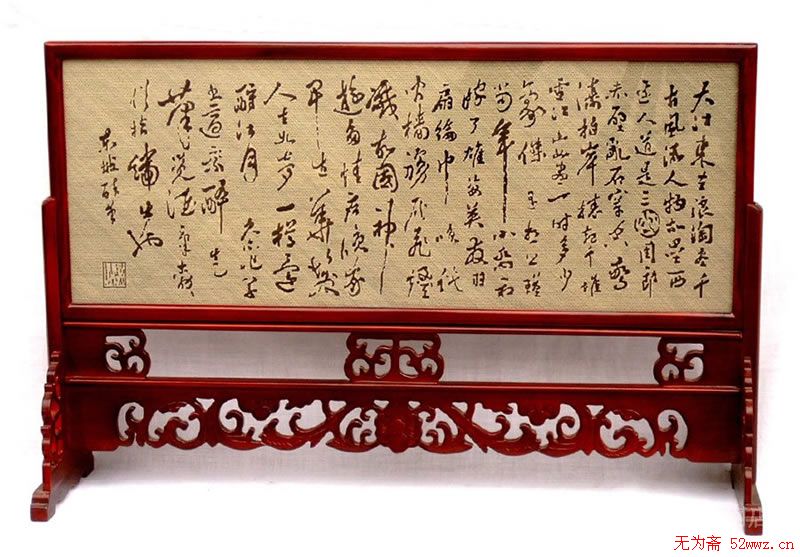 大江東去浪淘盡千
古風流人物故壘西
邊人道是三國周郎
赤壁亂石穿空驚
濤拍岸捲起千堆
雪江山如畫一時多少
豪傑遙想公瑾
當年小喬初
嫁了雄姿英發羽
扇綸巾談笑
間檣櫓灰飛煙
滅故國神
遊多情應笑我
早生華髮
人生如夢一樽還
酹江月 久不作草
書適乘醉走
筆覺酒氣勃勃
似指端出也
東坡醉筆
无为斋 52wwz.cn